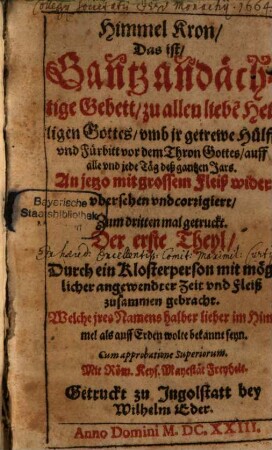 Collegij Societatis Jesu Monachij. 1664
Himmel Kron/
Das ist/
Gantz andäch-
tige Gebett/ zu allen liebē Hei-
ligen Gottes/ vmb jr getrewe Hülff
vnd Fürbitt vor dem Thron Gottes/ auff
alle vnd jede Täg deß gantzen Jars.
An jetzo mit grossem Fleiß wider
vbersehen vnd corrigiert/
Bayerische
Staatsbibliothek
Zum dritten mal getruckt.
Der erste Theyl/
Durch ein Klosterperson mit mög-
licher angewendter Zeit vnd Fleiß
zusammen gebracht.
Welche jres Namens halber lieber im Him-
mel als auff Erden wolte bekannt seyn.
Cum approbatione Superiorum.
Mit Röm. Keys. Mayestät Freyheit.
Getruckt zu Ingolstatt bey
Wilhelm Eder.
Anno Domini M. DC. XXIII.